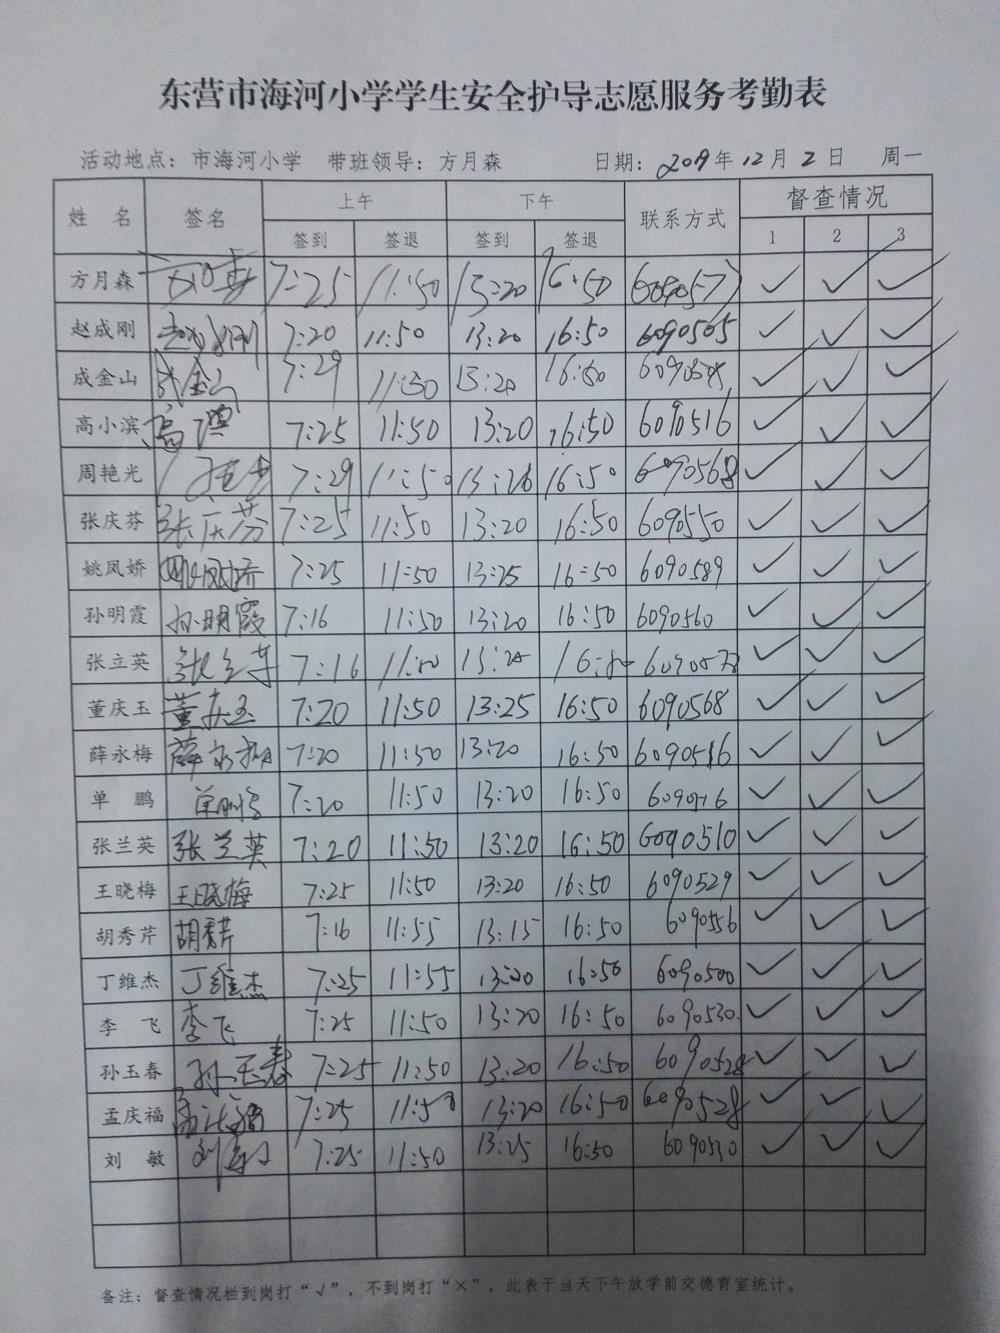 东营市海河小学学生安全护导志愿服务考勤表
活动地点：市海河小学 带班领导：方月森 日期：2019年12月2日 周一
姓 名 签名 上午 下午 联系方式 督查情况
签到 签退 签到 签退 1 2 3
方月森 7:25 11:50 13:20 16:50 6090577 ✓ ✓ ✓
赵成刚 赵成刚 7:20 11:50 13:20 16:50 6090505 ✓ ✓ ✓
成金山 成金山 7:29 11:50 13:20 16:50 ✓ ✓ ✓
高小滨 7:25 11:50 13:20 16:50 6090516 ✓ ✓ ✓
周艳光 7:29 11:50 13:26 16:50 6090568 ✓ ✓ ✓
张庆芬 张庆芬 7:25 11:50 13:20 16:50 6090550 ✓ ✓ ✓
姚凤娇 姚凤娇 7:25 11:50 13:25 16:50 6090589 ✓ ✓ ✓
孙明霞 孙明霞 7:16 11:50 13:20 16:50 6090560 ✓ ✓ ✓
张立英 张立英 7:16 ✓ ✓ ✓
董庆玉 董庆玉 7:20 11:50 13:25 16:50 6090568 ✓ ✓ ✓
薛永梅 薛永梅 7:20 11:50 13:20 16:50 6090516 ✓ ✓ ✓
单 鹏 单鹏 7:20 11:50 13:20 16:50 6090516 ✓ ✓ ✓
张兰英 张兰英 7:20 11:50 13:20 16:50 6090510 ✓ ✓ ✓
王晓梅 王晓梅 7:25 11:50 13:20 16:50 6090529 ✓ ✓ ✓
胡秀芹 胡秀芹 7:16 11:55 13:15 16:50 6090556 ✓ ✓ ✓
丁维杰 丁维杰 7:25 11:55 13:20 16:50 6090500 ✓ ✓ ✓
李 飞 李飞 7:25 11:50 13:20 16:50 6090530 ✓ ✓ ✓
孙玉春 孙玉春 7:25 11:50 13:20 16:50 6090528 ✓ ✓ ✓
孟庆福 孟庆福 7:25 11:50 13:20 16:50 6090528 ✓ ✓ ✓
刘 敏 刘敏 7:25 11:50 13:25 16:50 6090530 ✓ ✓ ✓
备注：督查情况栏到岗打“√”，不到岗打“×”，此表于当天下午放学前交德育室统计。